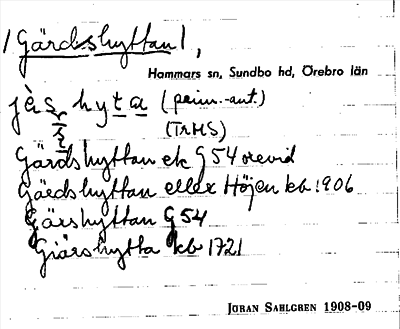 /Gärdshyttan/,
Hammars sn, Sundbo hd, Örebro län
jès hyta (prim.-ant.)
(TrHS)
Gärdshyttan ek G 54 orevid
Gärdshyttan eller Höjen kb 1906
Gärshyttan G 54
Giärshytta kb 1721
JÖRAN SAHLGREN 1908-09